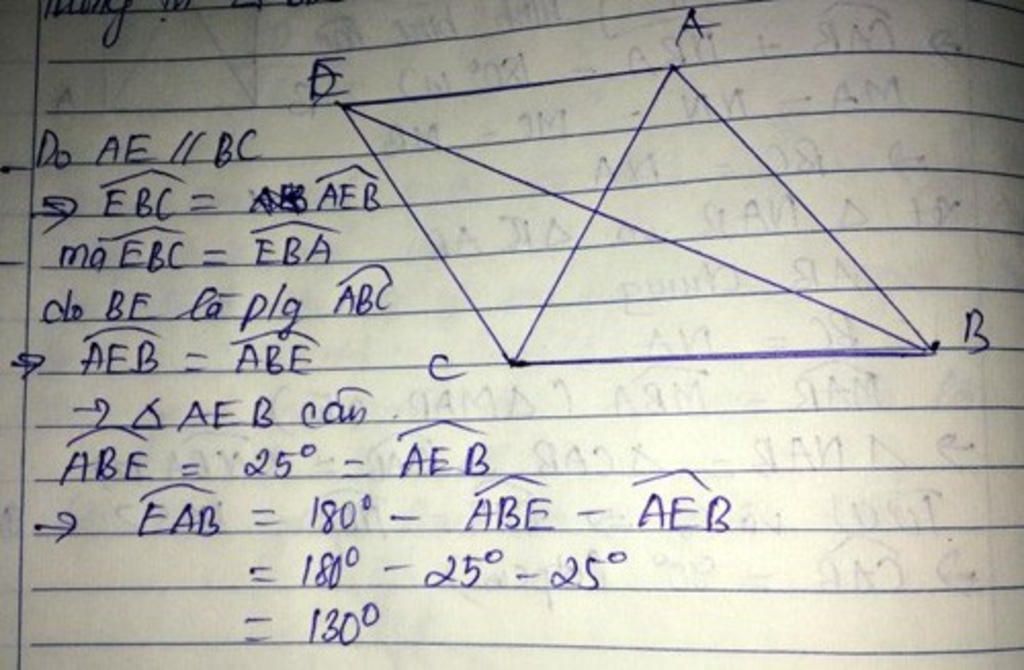 E A
Do AE // BC
=> EBC = AEB
mà EBC = EBA
do BE là p/g ABC
C B
=> AEB = ABE
-> Δ AEB cân.
ABE = 25° = AEB
-> EAB = 180° - ABE - AEB
= 180° - 25° - 25°
= 130°